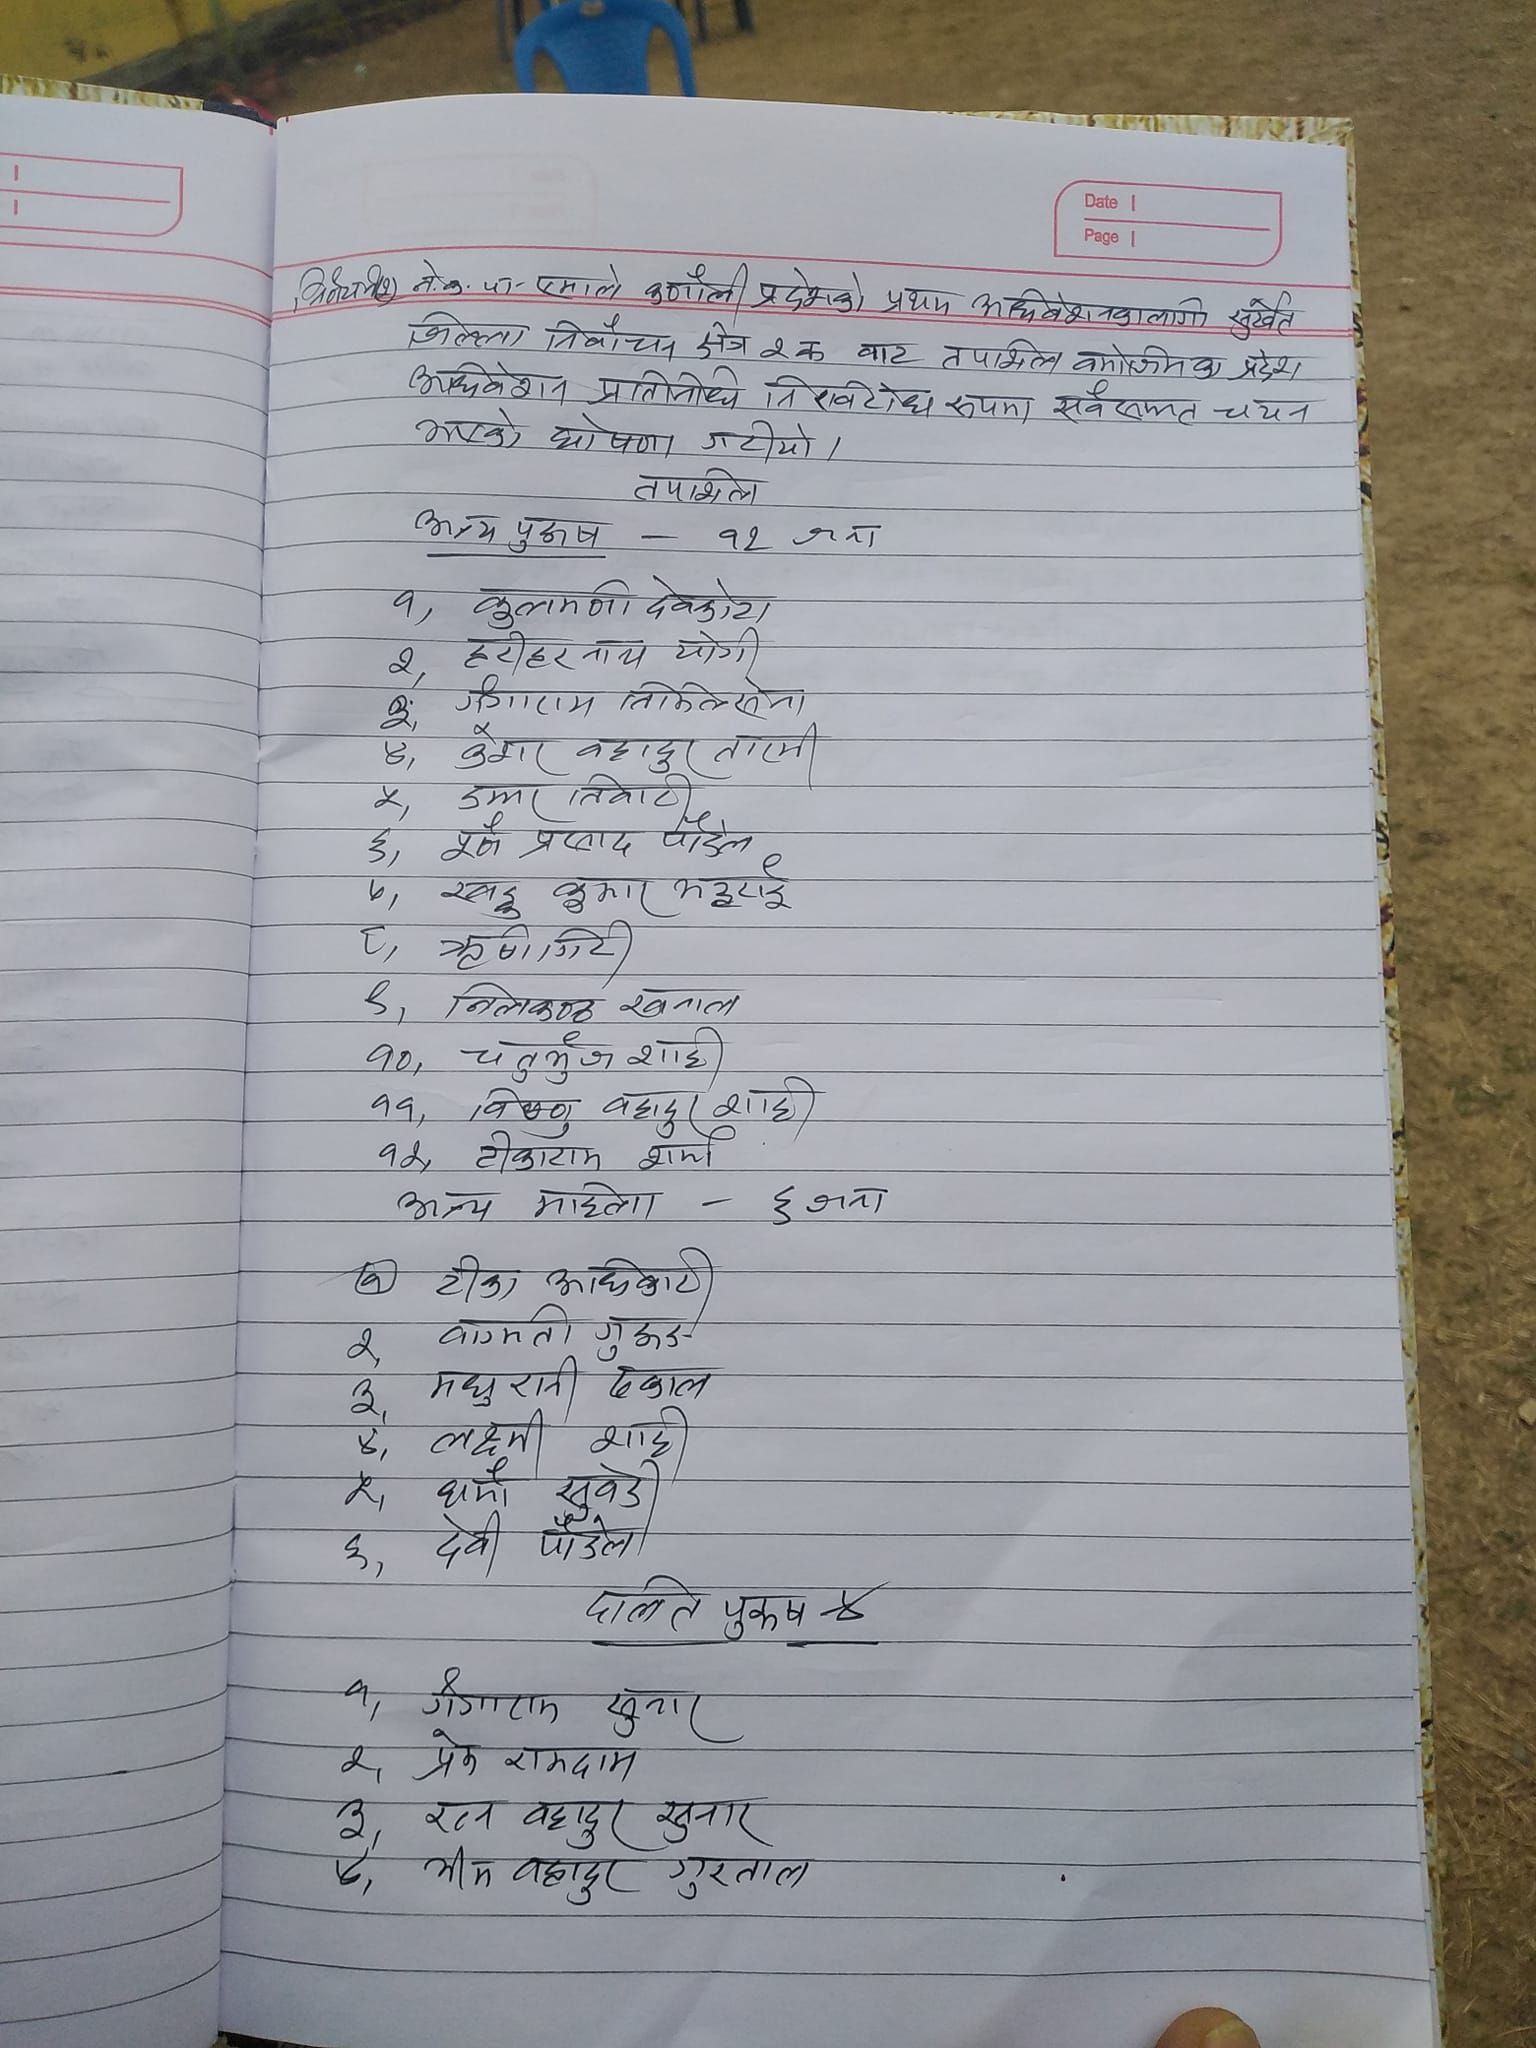 Date |
Page |
निर्णय नं(२) ने.क.पा. एमाले कर्णाली प्रदेशको प्रथम अधिवेशनकालागी सुर्खेत
जिल्ला निर्वाचन क्षेत्र २ क बाट तपाशिल बमोजिमका प्रदेश
अधिवेशन प्रतिनिधि निरविरोध रुपमा सर्वसम्मत चयन
भएको घोषणा गरीयो।
तपाशिल
अन्य पुरूष — १२ जना
१, कुलमणी देवकोटा
२, हरीहर नाथ योगी
३, गंगाराम तिमिल्सेना
४, केशर बहादुर तारमी
५, डम्मर तिवारी
६, पूर्ण प्रसाद पौडेल
७, खड्ग कुमार भट्टराई
८, ऋषी गिरी
९, निलकण्ठ खनाल
१०, चतुर्भुज शाही
११, विष्णु बहादुर शाही
१२, टीकाराम शर्मा
अन्य महिला — ६ जना
१ टीका अधिकारी
२, वागमती गुरूङ
३, मधु रानी ढकाल
४, लक्ष्मी शाही
५, धर्मा सुवेदी
६, देवी पौडेल
दलित पुरूष - ४
१, गंगाराम सुनार
२, प्रेम रामदाम
३, रत्न बहादुर सुनार
४, भीम बहादुर गुरताल